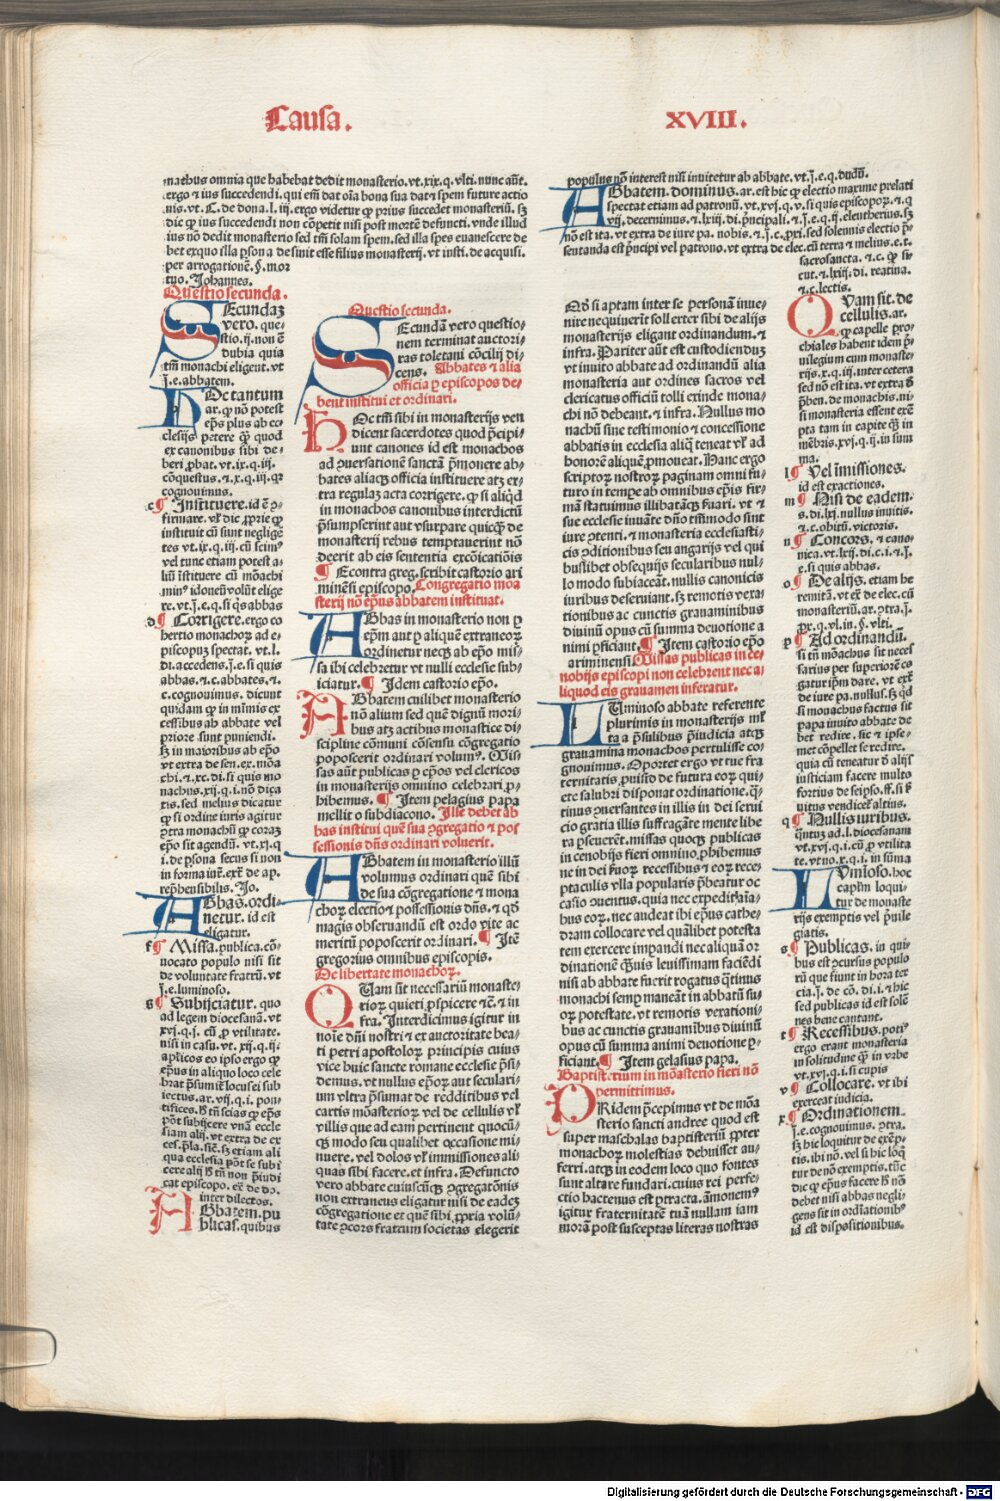 Causa.
XVIII.
nachus omnia que habebat dedit monasterio. vt. xix. q. vlti. nunc aūt.
ergo ⁊ ius succedendi. qui em̄ dat oīa bona sua dat ⁊ spem future actio
nis. vt. C. de dona. l. iij. ergo videtur ꝙ prius succedet monasteriū. sꝫ
dic ꝙ ius succedendi non cōpetit nisi post mortē defuncti. vnde illud
ius nō dedit monasterio sed tm̄ solam spem. sed illa spes euanescere de
bet exquo illa ꝑsona desinit esse filius monasterij. vt insti. de acquisi.
per arrogationē. §. mor
tuo. Johannes.
Questio secunda.
SEcundaꝫ
vero. que⸗
stio. ij. non ē
dubia quia
tm̄ monachi eligent. vt
j̄. e. abbatem.
HOc tantum
ar. ꝙ nō potest
ep̄s plus ab ec
clesijs petere ꝙ̄ quod
ex canonibus sibi de⸗
beri ꝓbat. vt. ix. q. iij.
cōquestus. ⁊. x. q. iij. qꝛ
cognouimus.
c ¶ Instituere. id ē ꝯ⸗
firmare. vl̓ dic ꝓprie ꝙ
instituit cū sunt neglige
tes vt. ix. q. iij. cū scim⁹
vel tunc etiam potest a⸗
liū īstituere cū mōachi
min⁹ idoneū volūt elige
re. vt. j̄. e. q. si q̇s abbas
d ¶ Corrigere. ergo co
hertio monachoꝝ ad e⸗
piscopuꝫ spectat. vt. l.
di. accedens. j̄. e. si quis
abbas. ⁊. c. abbates. ⁊.
c. cognouimus. dicunt
quidam ꝙ in mīmis ex
cessibus ab abbate vel
priore sunt puniendi.
sꝫ in maioribus ab ep̄o
vt extra de sen. ex. mōa
chi. ⁊. xc. di. si quis mo
nachus. xij. q. i. nō dica
tis. sed melius dicatur
ꝙ si ordine iuris agitur
ꝯtra monachū ꝙ coraꝫ
ep̄o sit agendū. vt. xj. q
i. de ꝑsona secus si non
in forma iur̄. ext̄ de ap.
rep̄hensibilis. Jo.
ABbas. ordi⸗
netur. id est
eligatur.
f ¶ Missa. publica. cō⸗
uocato populo nisi sit
de voluntate fratrū. vt
j̄. e. luminoso.
g ¶ Subijciatur. quo
ad legem diocesanā. vt
xvj. q. j. cū ꝓ vtilitate.
nisi in casu. vt. xij. q. ij⸗
ap̄licos eo ipso ergo ꝙ
ep̄us in aliquo loco cele
brat p̄sumit̄ locus ei sub
iectus. ar. vij. q. i. pon⸗
tifices. h̄ tn̄ scias ꝙ ep̄s
pōt subijcere vnā eccle
siam alij. vt extra de ex
ces. p̄la. sic̄. sꝫ etiam ali
qua ecclesia pōt se subi
cere alij h̄ tn̄ non p̄iudi
cat episcopo. ex̄ de do.
inter dilectos.
ABbatem. pu
blicas. quibus
Questio secunda.
SEcundā vero questio⸗
nem terminat auctori⸗
tas toletani cōcilij di⸗
cens. Abbates ⁊ alia
officia ꝑ episcopos de⸗
bent institui et ordinari.
HOc tm̄ sibi in monasterijs ven
dicent sacerdotes quod p̄cipi⸗
unt canones id est monachos
ad ꝯuersationē sanctā p̄monere ab⸗
bates aliacꝫ officia instituere atꝫ ex⸗
tra regulaꝫ acta corrigere. ꝙ si aliq̇d
in monachos canonibus interdictū
p̄sumpserint aut vsurpare quicꝙ̄ de
monasterij rebus temptauerint nō
deerit ab eis sententia excōicatiōis
¶ Econtra greg. scribit castorio ari
minēsi episcopo. Congregatio mōa
sterij nō ep̄us abbatem instituat.
ABbas in monasterio non ꝑ
ep̄m aut ꝑ aliquē extraneoꝝ
ordinetur neqꝫ ab ep̄o mis⸗
sa ibi celebretur vt nulli ecclesie sub⸗
iciatur. ¶ Idem castorio ep̄o.
ABbatem cuilibet monasterio
nō alium sed quē dignū mori⸗
bus atꝫ actibus monastice di⸗
scipline cōmuni cōsensu cōgregatio
poposcerit ordinari volum⁹. Mis⸗
sas aūt publicas ꝑ ep̄os vel clericos
in monasterijs omnino celebrari ꝓ⸗
hibemus. ¶ Item pelagius papa
mellito subdiacono. Ille debet ab
bas institui quē sua ꝯgregatio ⁊ pos
sessionis dn̄s ordinari voluerit.
ABbatem in monasterio illū
volumus ordinari quē sibi
de sua cōgregatione ⁊ mona
choꝝ electio ⁊ possessionis dn̄s. ⁊ qd̄
magis obseruandū est ordo vite ac
meritū poposcerit ordinari. ¶ Itē
gregorius omnibus episcopis.
De libertate monachoꝝ.
QUam sit necessariū monaste⸗
rioꝝ quieti ꝓspicere ⁊c̄. ⁊ in
fra. Interdicimus igitur in
noīe dn̄i nostri ⁊ ex auctoritate bea⸗
ti petri apostoloꝝ principis cuius
vice huic sancte romane ecclesie p̄si⸗
demus. vt nullus ep̄oꝝ aut seculari⸗
um vltra p̄sumat de redditibus vel
cartis mōasterioꝝ vel de cellulis vl̓
villis que ad eam pertinent quocū⸗
qꝫ modo seu qualibet occasione mi⸗
nuere. vel dolos vl̓ immissiones ali⸗
quas sibi facere. et infra. Defuncto
vero abbate cuiuscūqꝫ ꝯgregatōnis
non extraneus eligatur nisi de eadeꝫ
cōgregatione et quē sibi ꝓpria volū⸗
tate ꝯcors fratrum societas elegerit
Qd̄ si aptam inter se personā inue⸗
nire nequiuerīt sollerter sibi de alijs
monasterijs eligant ordinandum. ⁊
infra. Pariter aūt est custodienduꝫ
vt inuito abbate ad ordinandū alia
monasteria aut ordines sacros vel
clericatus officiū tolli exinde mona⸗
chi nō debeant. ⁊ infra. Nullus mo
nachū sine testimonio ⁊ concessione
abbatis in ecclesia aliq̄ teneat vl̓ ad
honorē aliquē ꝓmoueat. Hanc ergo
scriptoꝝ nostroꝝ paginam omni fu⸗
turo in tempe ab omnibus ep̄is fir⸗
mā statuimus illibatācꝫ s̄uari. vt ⁊
sue ecclesie iuuāte dn̄o tm̄modo sint
iure ꝯtenti. ⁊ monasteria ecclesiasti⸗
cis ꝯditionibus seu angarijs vel qui
buslibet obsequijs secularibus nul⸗
lo modo subiaceāt. nullis canonicis
iuribus deseruiant. sꝫ remotis vexa⸗
tionibus ac cunctis grauaminibus
diuinū opus cū summa deuotione a
nimi ꝑficiant. ¶ Item castorio ep̄o
ariminensi. Missas publicas in ce⸗
nobijs episcopi non celebrent nec a⸗
liquod eis grauamen inferatur.
LUminoso abbate referente
plurimis in monasterijs ml̓
ta a p̄sulibus p̄iudicia atqꝫ
grauamina monachos pertulisse co⸗
gnouimus. Oportet ergo vt tue fra
ternitatis ꝓuisio de futura eoꝝ qui⸗
ete salubri disponat ordinatione. q̄⸗
tinus ꝯuersantes in illis in dei serui
cio gratia illis suffragāte mente libe
ra ꝑseuerēt. missas quoqꝫ publicas
in cenobijs fieri omnino ꝓhibemus
ne in dei s̄uoꝝ recessibus ⁊ eoꝝ rece⸗
ptaculis vlla popularis p̄beatur oc
casio ꝯuentus. quia nec expedit aīa⸗
bus eoꝝ. nec audeat ibi ep̄us cathe⸗
dram collocare vel qualibet potesta
tem exercere impandi nec aliquā or
dinationē quis leuissimam faciēdi
nisi ab abbate fuerit rogatus q̄tinus
monachi semꝑ maneāt in abbatū su⸗
oꝝ potestate. vt remotis vexationi⸗
bus ac cunctis grauamībus diuinū
opus cū summa animi deuotione ꝑ⸗
ficiant. ¶ Item gelasius papa.
Baptisterium in mōasterio fieri nō
permittimus.
PRidem p̄cepimus vt de mōa
sterio sancti andree quod est
super maschalas baptisteriū ꝓpter
monachoꝝ molestias debuisset au⸗
ferri. atqꝫ in eodem loco quo fontes
sunt altare fundari. cuius rei perfe⸗
ctio hactenus est ꝓtracta. āmonem⁹
igitur fraternitatē tuā nullam iam
morā post susceptas literas nostras
populus nō interest nisi inuitetur ab abbate. vt. j̄. e. q. dudū.
ABbatem. dominus. ar. est hic ꝙ electio maxime prelati
spectat etiam ad patronū. vt. xvj. q. v. si quis episcopoꝝ. ⁊. q
vij. decernimus. ⁊. lxiij. di. p̄ncipali. ⁊. j̄. e. q. ij. eleutherius. sꝫ
nō est ita. vt extra de iure pa. nobis. ⁊. j̄. c. ꝓxi. sed solennis electio p̄⸗
sentanda est p̄ncipi vel patrono. vt extra de elec. cū terra ⁊ melius. e. t.
sacrosancta. ⁊. c. ꝙ si⸗
cut. ⁊. lxiij. di. reatina.
⁊. c. lectis.
QUam sit. de
cellulis. ar.
ꝙ capelle pro⸗
chiales habent idem p̄⸗
uilegium cum monaste⸗
rijs. x. q. iij. inter cetera
sed nō est ita. vt extra d̄
p̄ben. de monachis. ni⸗
si monasteria essent exē
pta tam in capite ꝙ̄ in
mēbris. xvj. q. ij. in sum
ma.
l ¶ Vel īmissiones.
id est exactiones.
m ¶ Nisi de eadem.
s. di. lxj. nullus inuitis.
⁊. c. obitū. victoris.
n ¶ Concors. ⁊ cano⸗
nica. vt. lxij. di. c. i. ⁊. j̄.
e. si quis abbas.
o ¶ De alijs. etiam he
remitā. vt ex̄ de elec. cū
monasteriū. ar. ꝯtra. j̄.
ꝓx. q. vl. in. §. vlti.
p ¶ Ad ordinandū.
si tn̄ mōachus sit neces
sarius per superiorē co
gatur ip̄m dare. vt ext̄
de iure pa. nullus. sꝫ q̇d
si monachus factus sit
papa inuito abbate de
bet redire. sic ⁊ ipse⸗
met cōpellet se redire.
quia cū teneatur d̄ alijs
iusticiam facere multo
fortius de seipso. ff. si s̄
uitus vendicet̄ alius.
q ¶ Nullis iuribus.
q̄ntuꝫ ad. l. diocesanam
vt. xvj. q. i. cū ꝓ vtilita
te. vt no. x. q. i. in sūma
LUmīoso. hoc
caplm̄ loqui⸗
tur de monaste
rijs exemptis vel p̄uile
giatis.
s ¶ Publicas. in qui⸗
bus est ꝯcursus populo
rū que fiunt in hora ter
cia. j̄. de cō. di. i. ⁊ hic
sed publicas id est solē⸗
nes bene cantant.
t ¶ Recessibus. poti⸗
ergo erant monasteria
in solitudine ꝙ̄ in vrbe
vt. xvj. q. i. si cupis
v ¶ Collocare. vt ibi
exerceat iudicia.
x ¶ Ordinationem.
j̄. e. cognouimus. ꝯtra.
sꝫ hic loquitur de exēp⸗
tis. ibi nō. vel si hic loq̇
tur de nō exemptis. tūc
dic ꝙ ep̄us facere h̄ nō
debet nisi abbas negli⸗
gens sit in ordīationib⁹
id est dispositionibus.
Digitalisierung gefördert durch die Deutsche Forschungsgemeinschaft - DFG